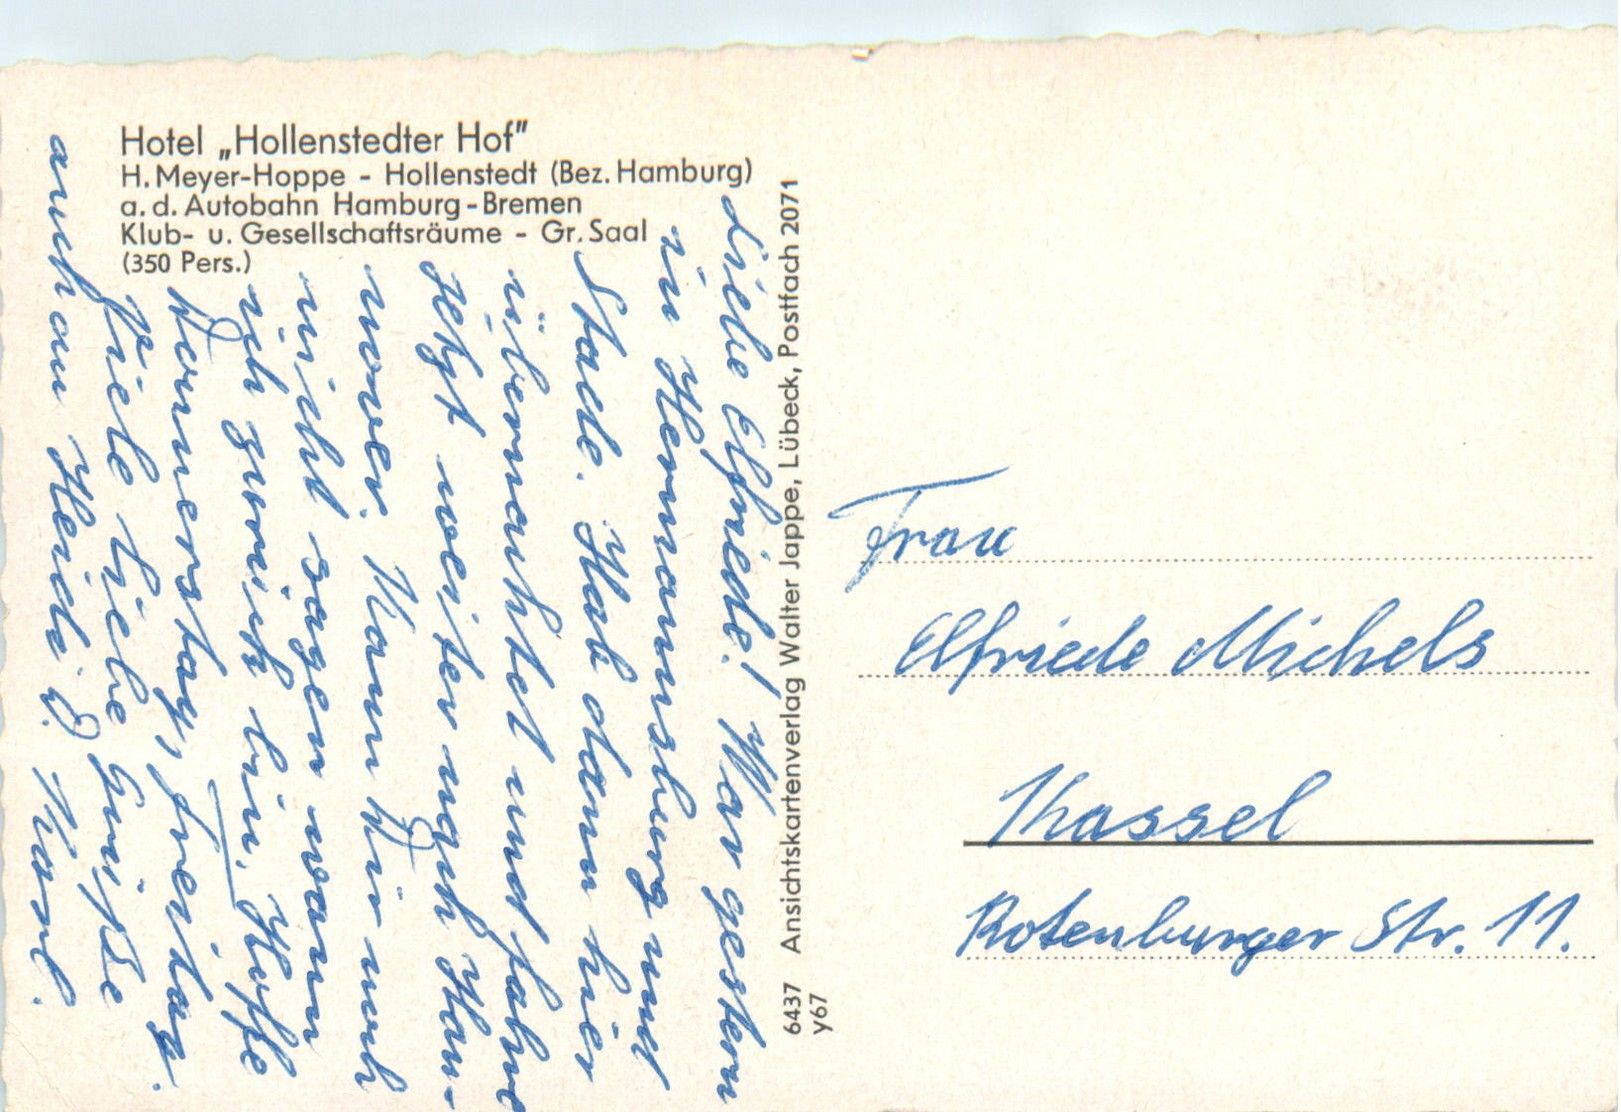 Hotel „Hollenstedter Hof"
H. Meyer-Hoppe - Hollenstedt (Bez. Hamburg)
a. d. Autobahn Hamburg - Bremen
Klub- u. Gesellschaftsräume - Gr. Saal
(350 Pers.)
Liebe Elfriede! War gestern
in Hermannsburg und
Stade. Hab dann hier
übernachtet und fahre
jetzt weiter nach Han-
nover. Kann Dir noch
nicht sagen wann
ich zurück bin. Hoffe
Donnerstag, Freitag.
Viele liebe Grüße
auch an Heidi D. Karl.
6437 Ansichtskartenverlag Walter Jappe, Lübeck, Postfach 2071
y67
Frau
Elfriede Michels
Kassel
Rotenburger Str. 11.